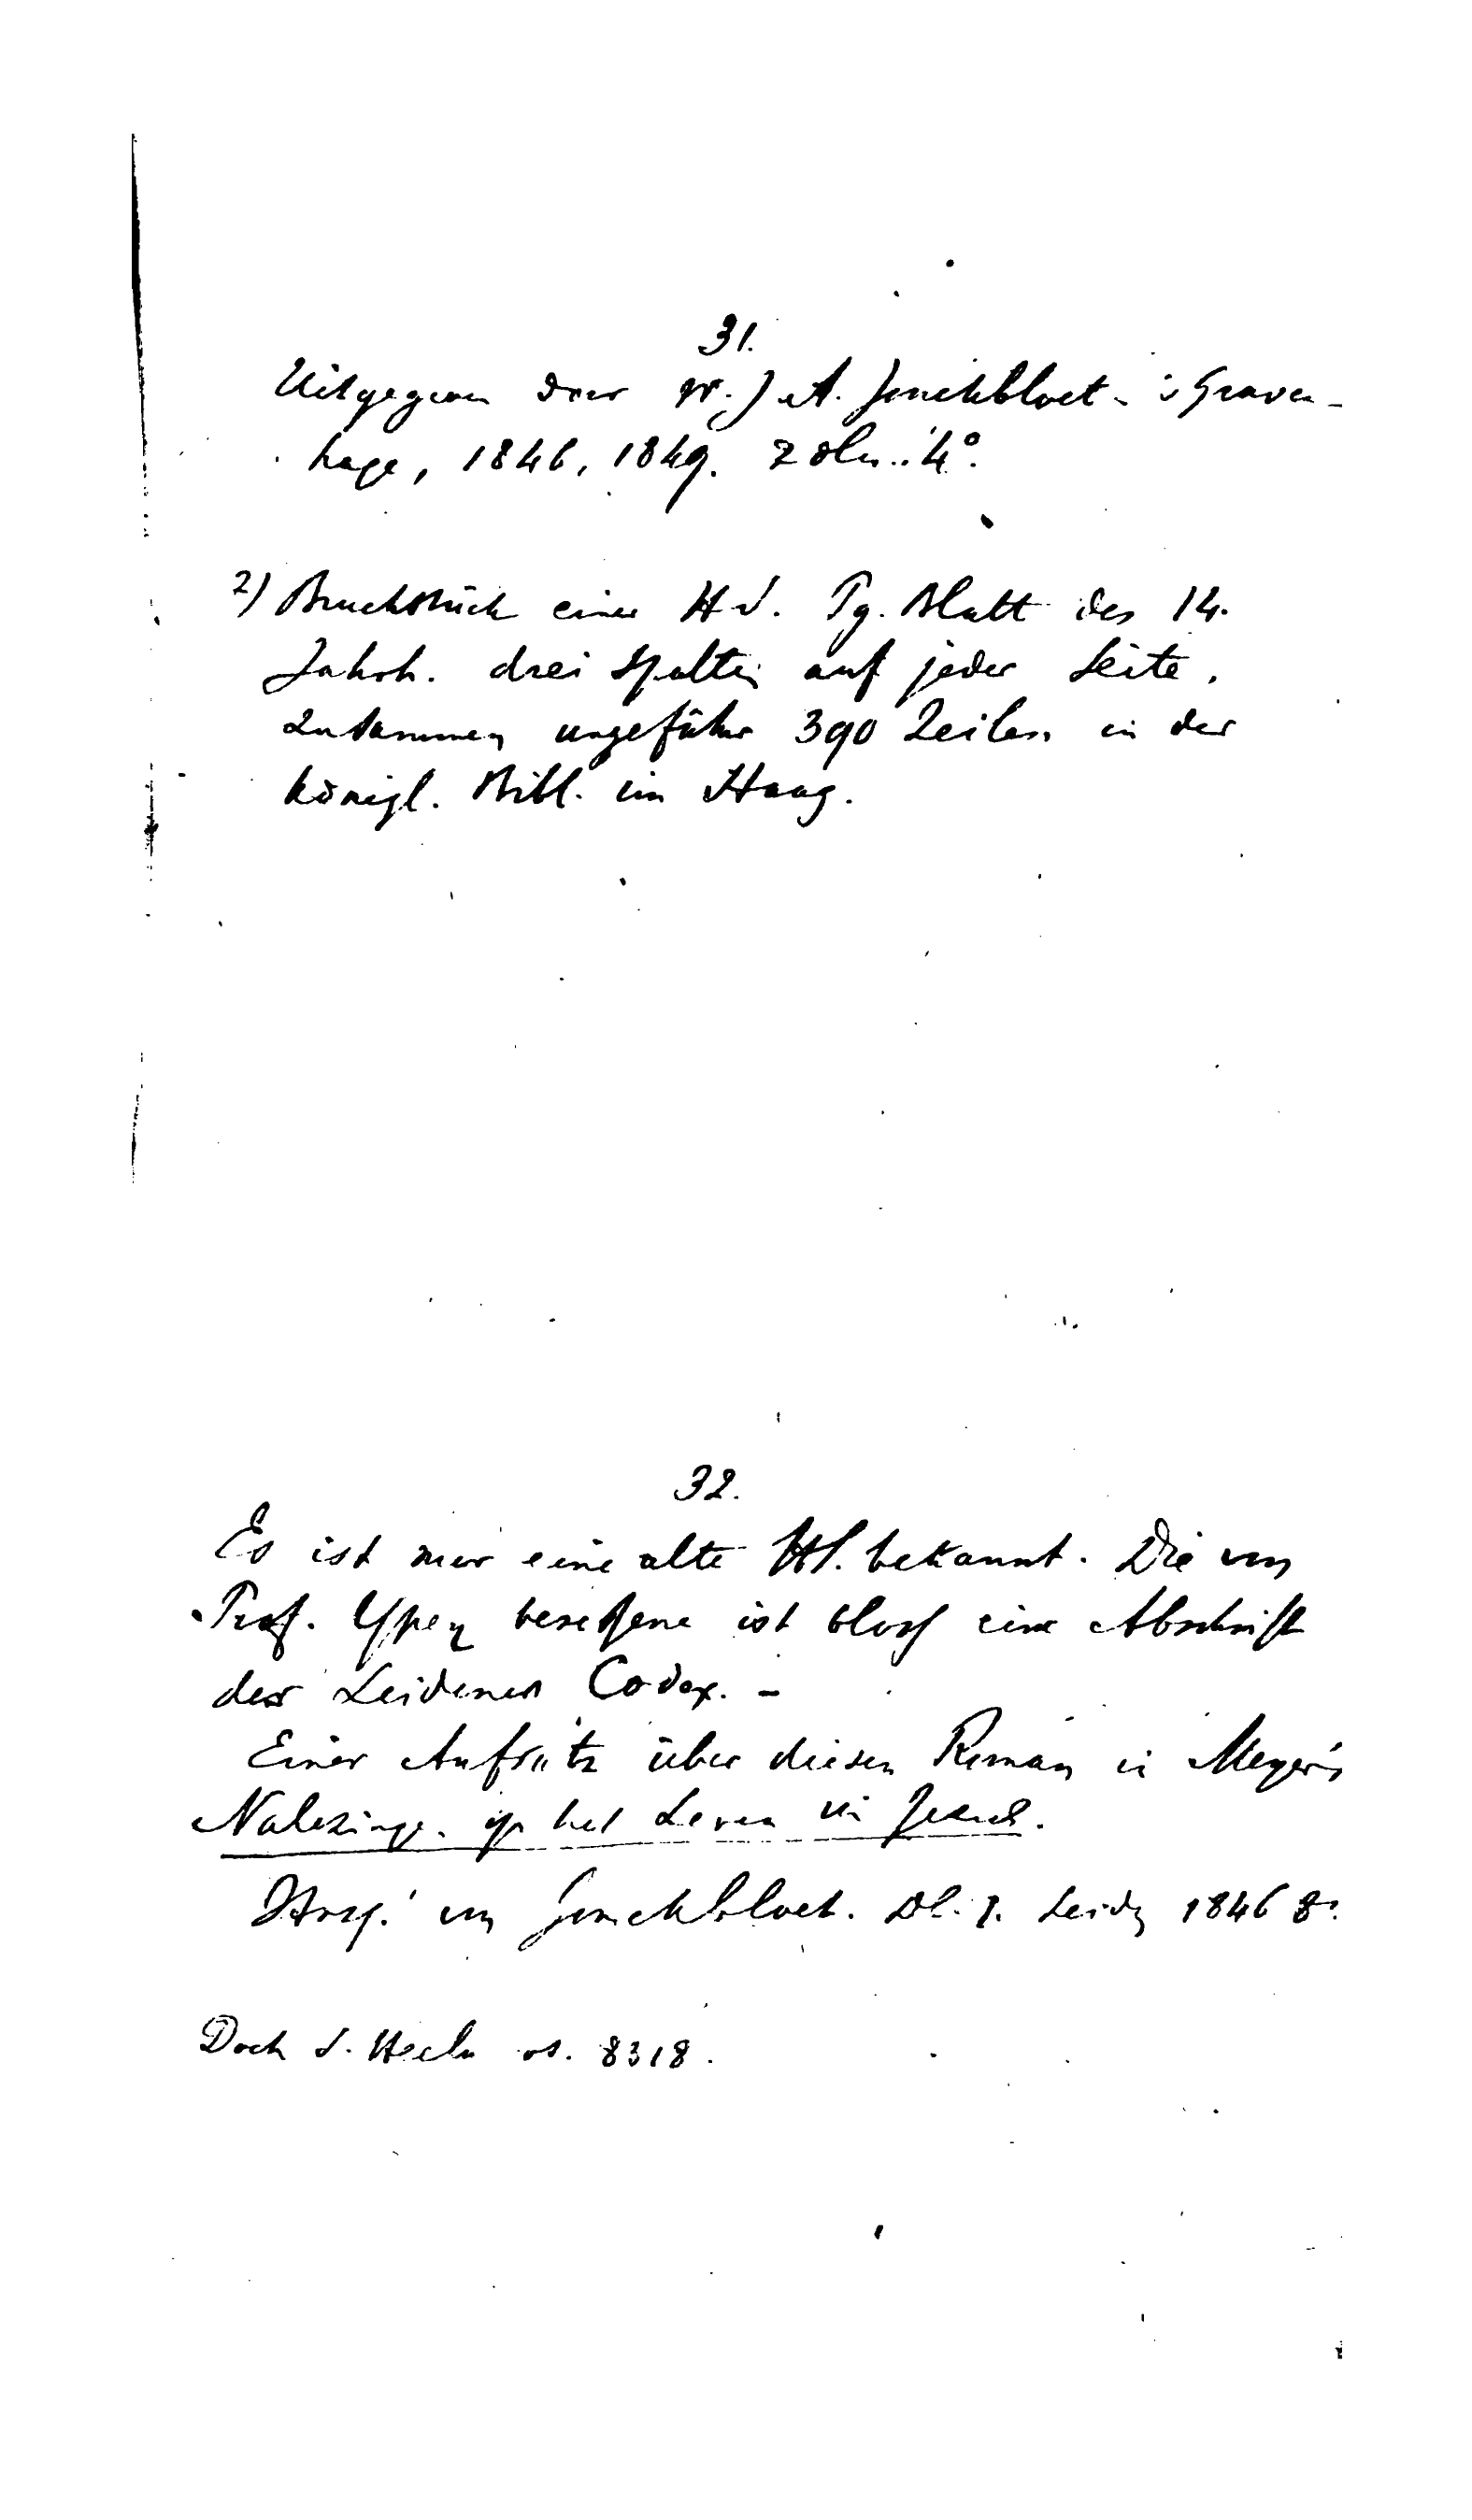 31.
Uitgegeven door W. J. A. Jonckbloet. 's Graven-
hage, 1846, 1849. 2 dln. 4°.
2) Bruchstück einer Hs. Pg. Blatt des 14.
Jahrh. drei Spalten auf jeder Seite,
zusammen ungefähr 390 Zeilen in der
königl. Bibl. im Haag.
32.
Es ist nur eine alte Hs. bekannt. Die von
Prof. Ypey besessene ist bloss eine Abschrift
des Leidener Codex. -
Einer Aufsatz über diesen Roman in Meyer's
Nalezinge. op het Leven van Jezus.
Hrsg. von Jonckbloet. Dl. I. Leiden 1846 8°.
Doch s. vs. 8318.